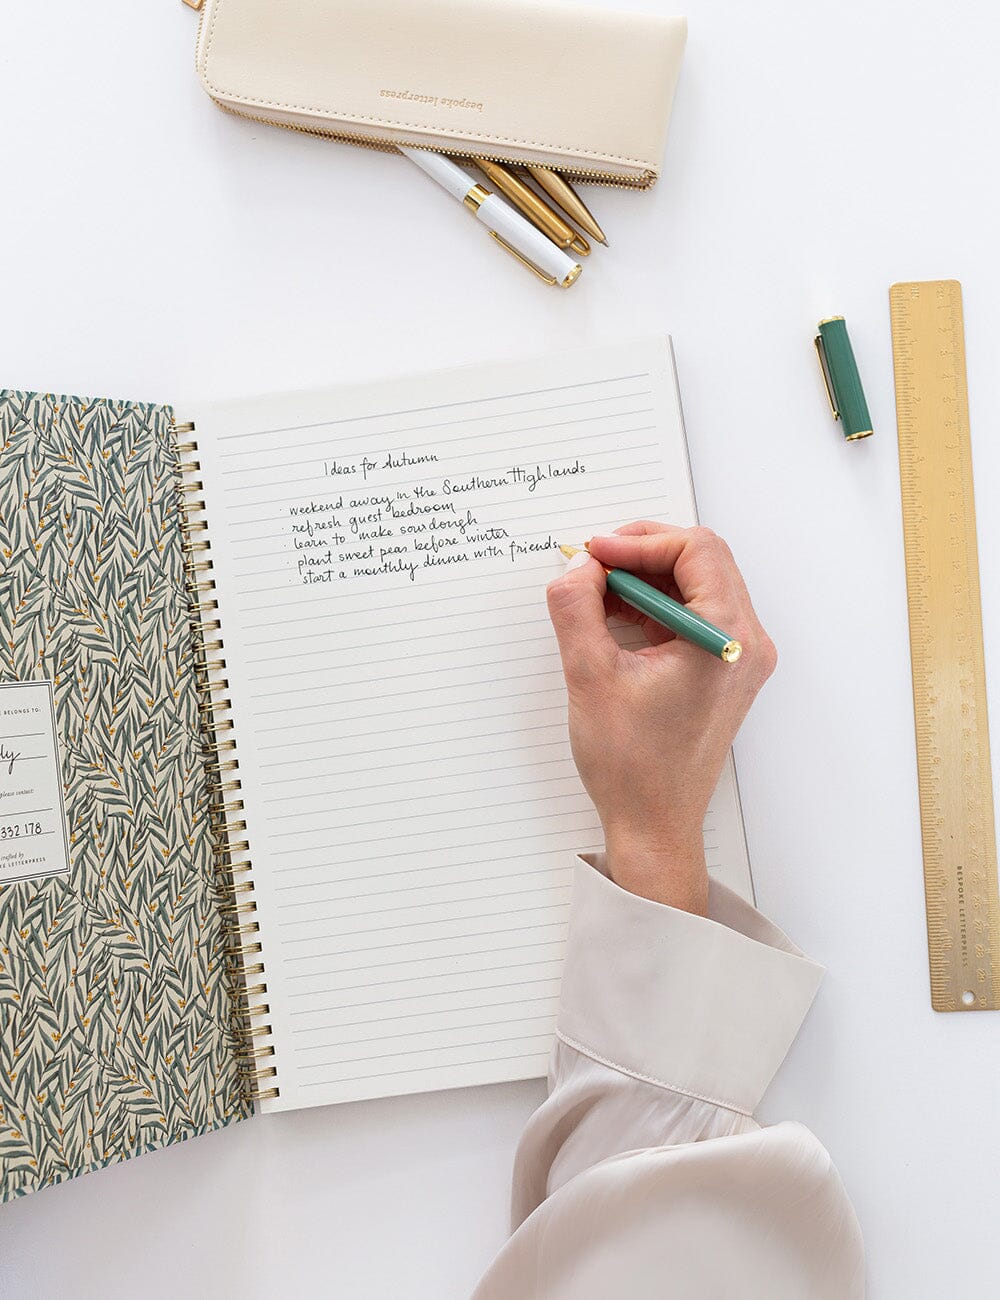 bespoke letterpress
Ideas for Autumn
· weekend away in the Southern Highlands
· refresh guest bedroom
· learn to make sourdough
· plant sweet peas before winter
· start a monthly dinner with friends
BELONGS TO:
please contact:
332 178
crafted by
LETTERPRESS
BESPOKE LETTERPRESS